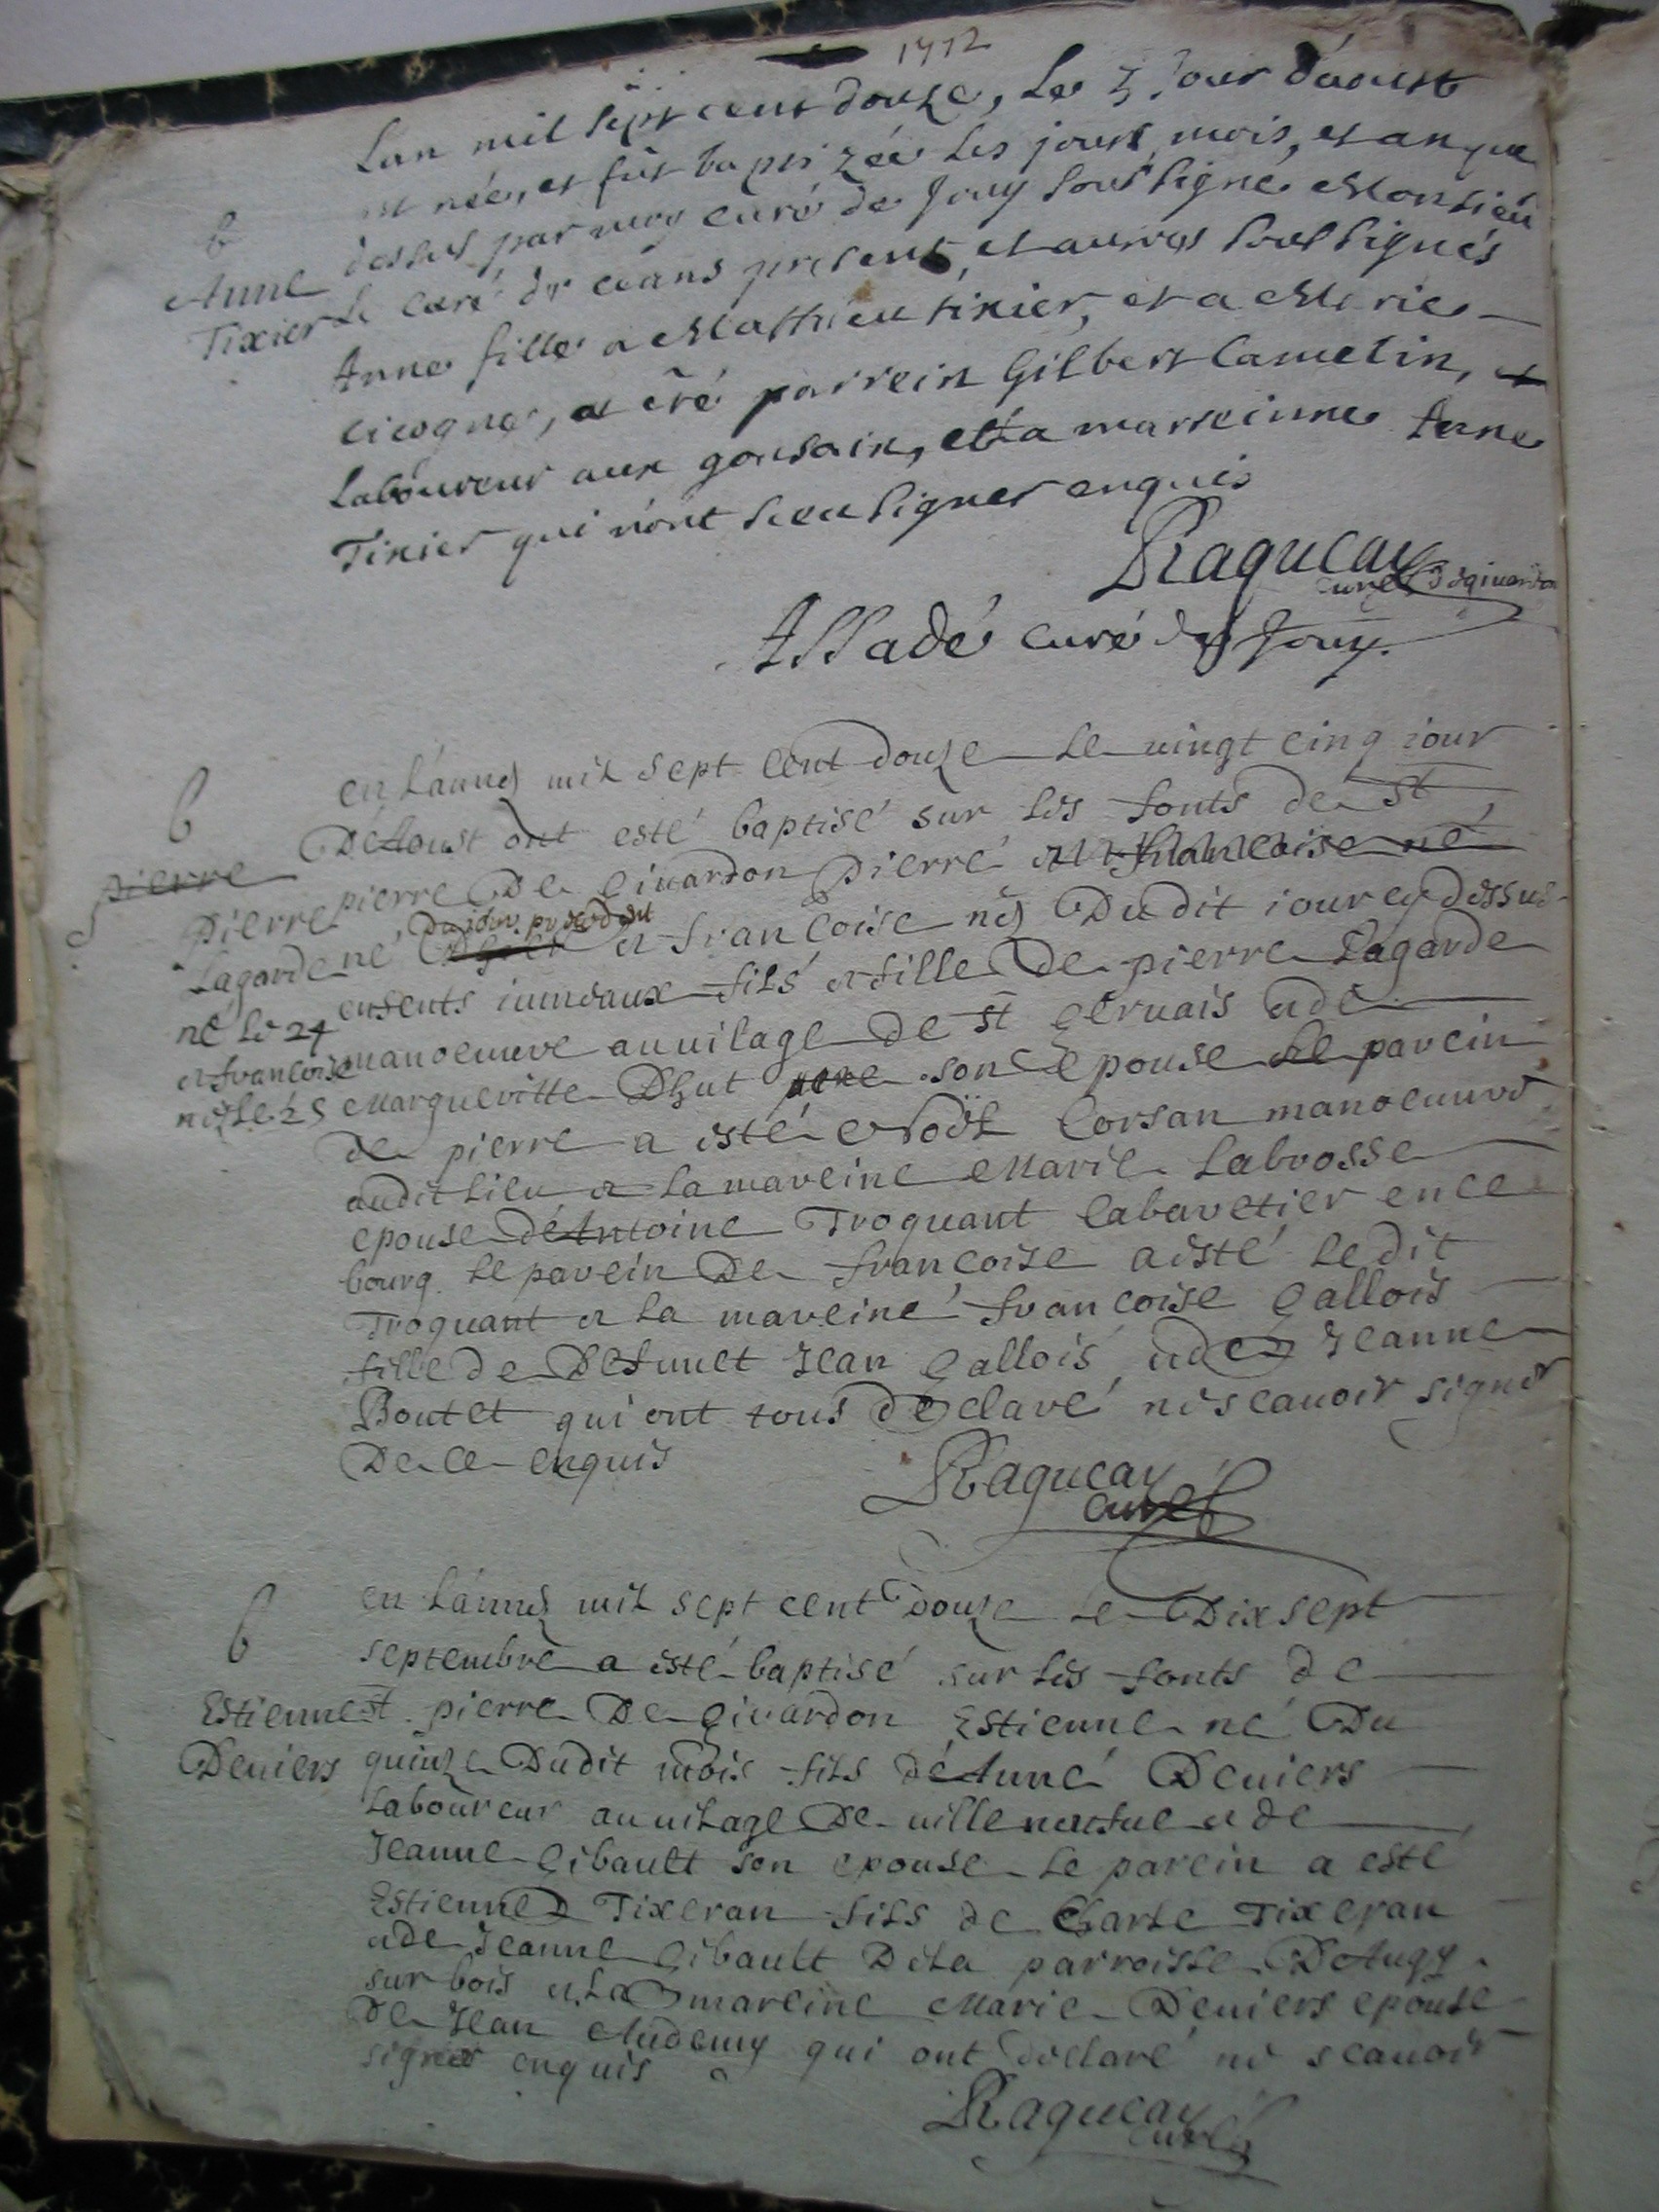 1712
Lan mil sept cent douze, Le 3 Jour d'aoust
est née, et fut baptizée Les jours mois, et an que
dessus par moy curé de Jouy soussigné Monsieur
Le curé de céans present, et autres soussignés
Anne fille a Matthieu tixier, et a Marie
cicogne, a été parrein Gilbert Camelin,
Laboureur aux gousain, et la marreinne Anne
Tixier qui n'ont sceu signer enquis
b
Anne
Tixier
Ragueau
curé de givardon
Assadé curé de Jouy.
en L'anneé mil sept cent douze le vingt cinq iour
D'Aoust ont esté baptisé sur les fonts de st
pierre De givardon pierre et francoise né
né Du iour precedent et francoise neé Du dit iour cy dessus
enfents iumeaux fils et fille De pierre Lagarde
manoeuvre au uilage De st geruais et de
Margueritte Dhut pere son epouse le parein
de pierre a esté Noël Corsan manoeuure
audit lieu et la mareine Marie Labrosse
epouse d'Antoine Troquant cabaretier en ce
bourg. le parein De francoise a esté le dit
Troquant et la mareine francoise gallois
fille de Defunct Jean gallois et de Jeanne
Boutet qui ont tous Déclaré ne scauoir signer
De ce enquis
b
pierre
pierre
Lagarde
né le 24
et francoise
neé le 25
Ragueau
curé
en L'anneé mil sept cent douze le Dix sept
septembre a esté baptisé sur les fonts de
st. pierre De givardon Estienne né Du
quinze Dudit mois fils d'Anné Deuiers
laboureur au uilage De uilleneufue et de
Jeanne gibault son epouse le parein a esté
Estienne Tixeran fils de Charle Tixeran
et de Jeanne gibault De la parroisse D'Augy
sur bois et La mareine Marie Deuiers epouse
De Jean Audemy qui ont declaré ne scauoir
signer enquis
b
Estienne
Deuiers
Ragueau
curé